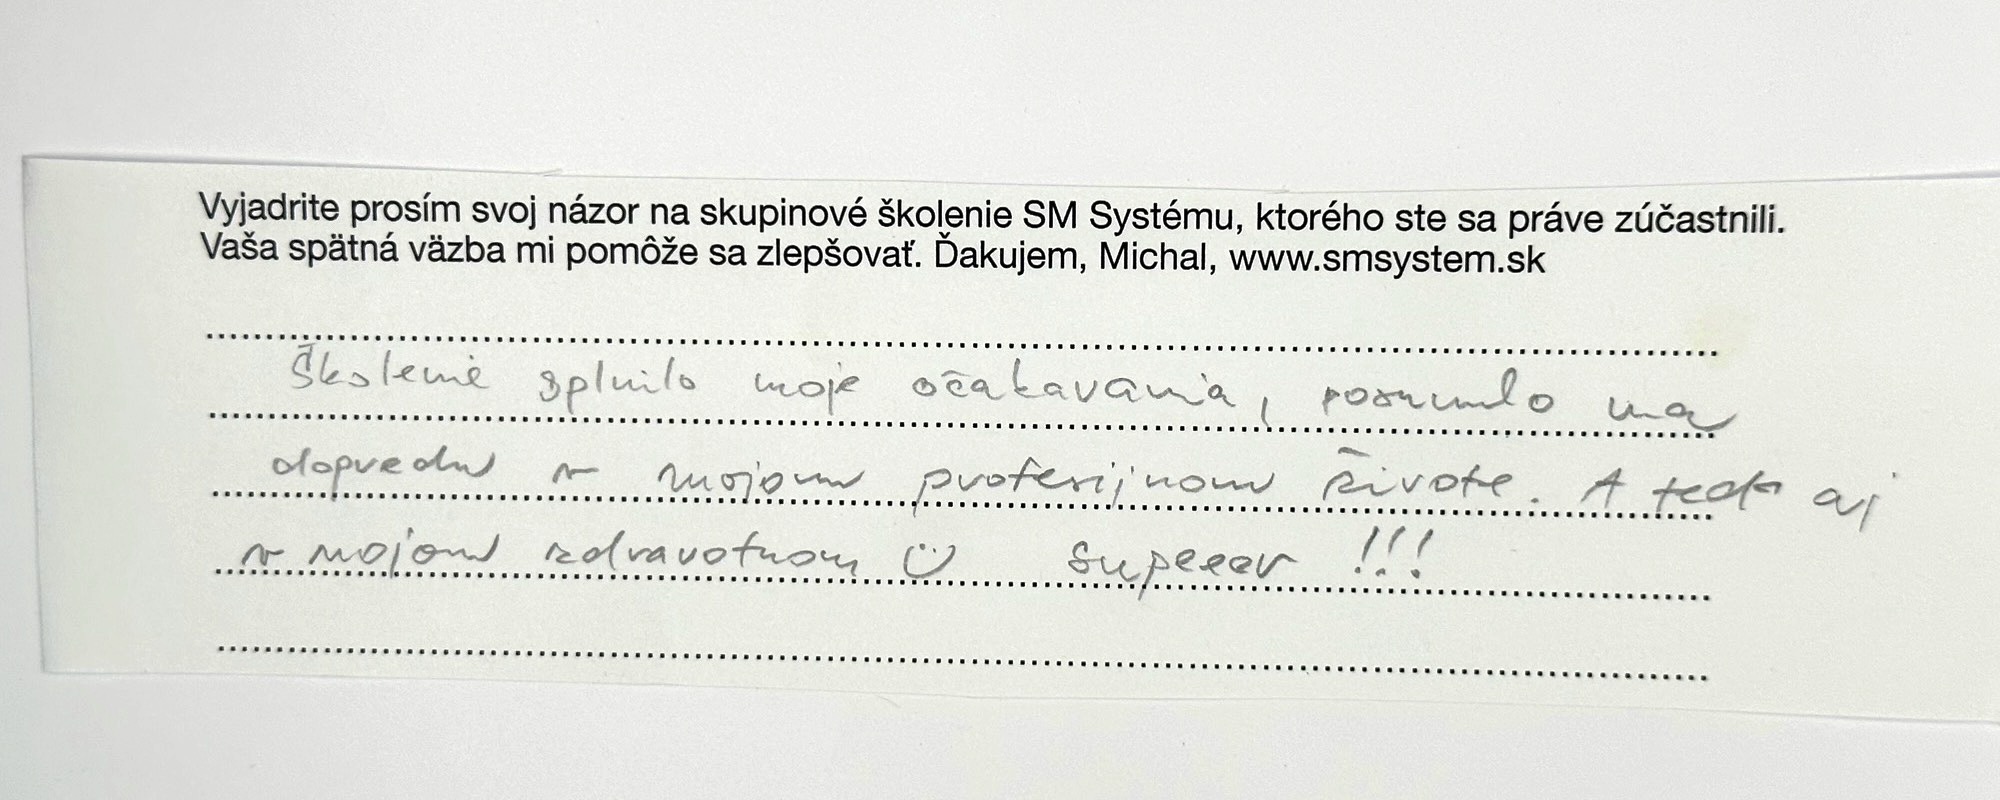 Vyjadrite prosím svoj názor na skupinové školenie SM Systému, ktorého ste sa práve zúčastnili.
Vaša spätná väzba mi pomôže sa zlepšovať. Ďakujem, Michal, www.smsystem.sk
Školenie splnilo moje očakávania, posunulo ma
dopredu v mojom profesijnom živote. A teda aj
v mojom zdravotnom ☺ Supeeer !!!